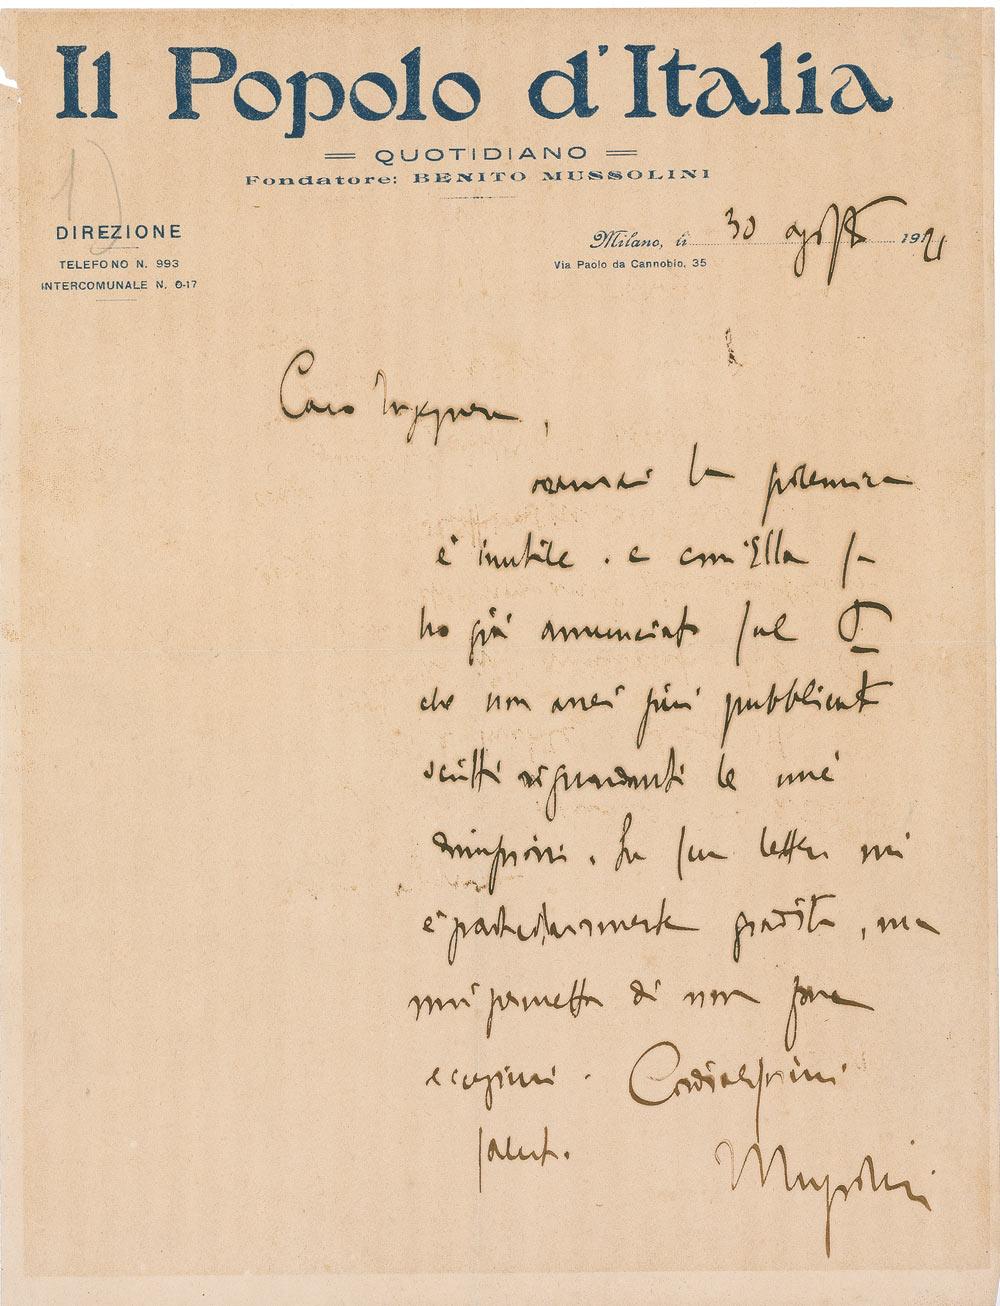 Il Popolo d'Italia
QUOTIDIANO
Fondatore: BENITO MUSSOLINI
1)
DIREZIONE
TELEFONO N. 993
INTERCOMUNALE N. 0-17
Milano, li 30 agosto 1921
Via Paolo da Cannobio, 35
Caro Ingegnere,
oramai la polemica
è inutile. e com'Ella sa
ho già annunciato sul
che non avrei più pubblicato
scritti riguardanti le mie
dimissioni. La sua lettera mi
è particolarmente gradita, ma
mi permetta di non fare
eccezioni. Cordialissimi
saluti.
Mussolini